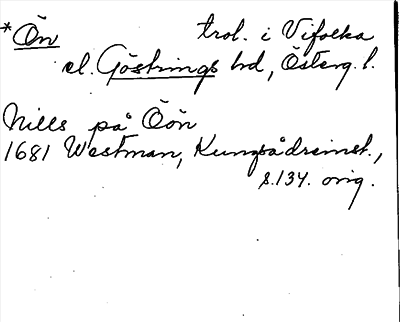 *Ön trol. i Vifolka
el. Göstrings hd, Österg. l.
Nills på Öön
1681 Westman, Kungsådreinst.,
s. 134. orig.